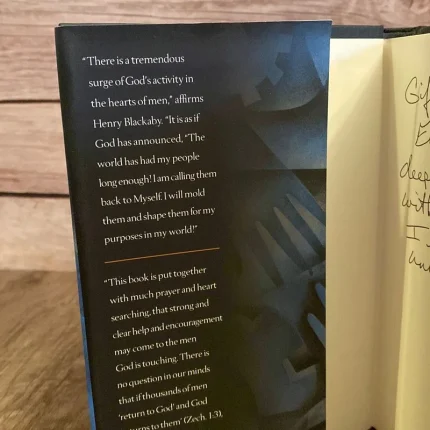 “There is a tremendous
surge of God's activity in
the hearts of men,” affirms
Henry Blackaby. “It is as if
God has announced, “The
world has had my people
long enough! I am calling them
back to Myself. I will mold
them and shape them for my
purposes in my world!”
“This book is put together
with much prayer and heart
searching, that strong and
clear help and encouragement
may come to the men
God is touching. There is
no question in our minds
that if thousands of men
‘return to God’ and God
to them’ (Zech. 1:3),
deep
with
I